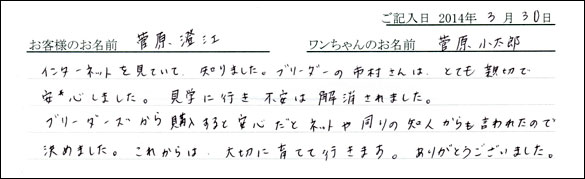 ご記入日 2014年 3月 30日
お客様のお名前 菅原 澄江 ワンちゃんのお名前 菅原 小太郎
インターネットを見ていて、知りました。ブリーダーの市村さんは、とても親切で
安心しました。見学に行き 不安は解消されました。
ブリーダーズから購入すると安心だとネットや周りの知人からも言われたので
決めました。これからは、大切に育てて行きます。ありがとうございました。